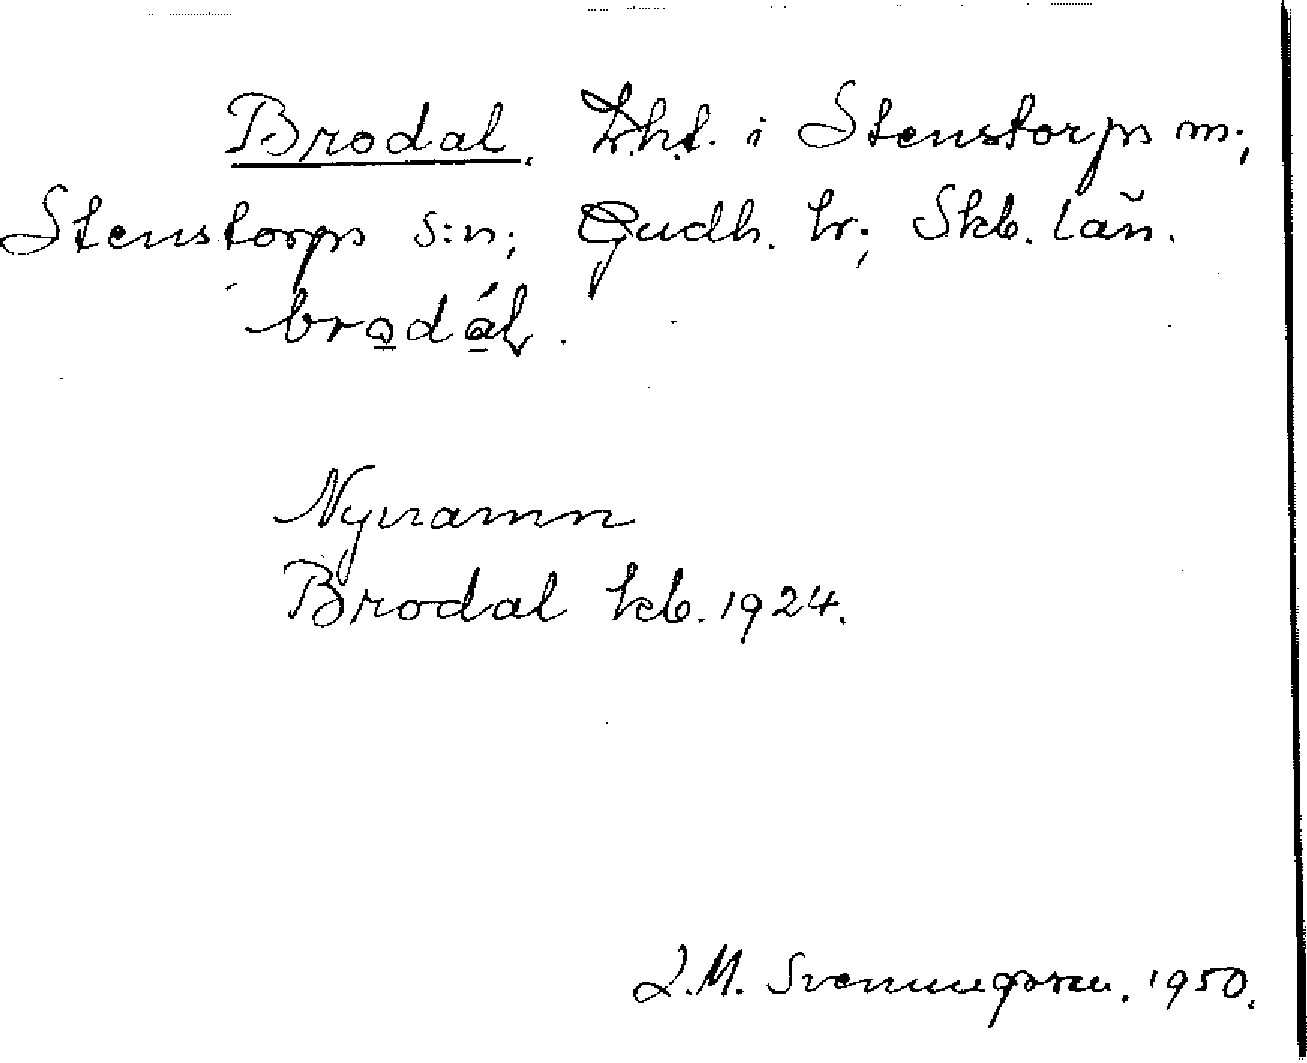 Brodal. Lht. i Stenstorps m;
Stenstorps s:n; Gudh. hr; Skb. län.
brodál.
Nynamn
Brodal kb. 1924.
J.M. Svenningsson. 1950.